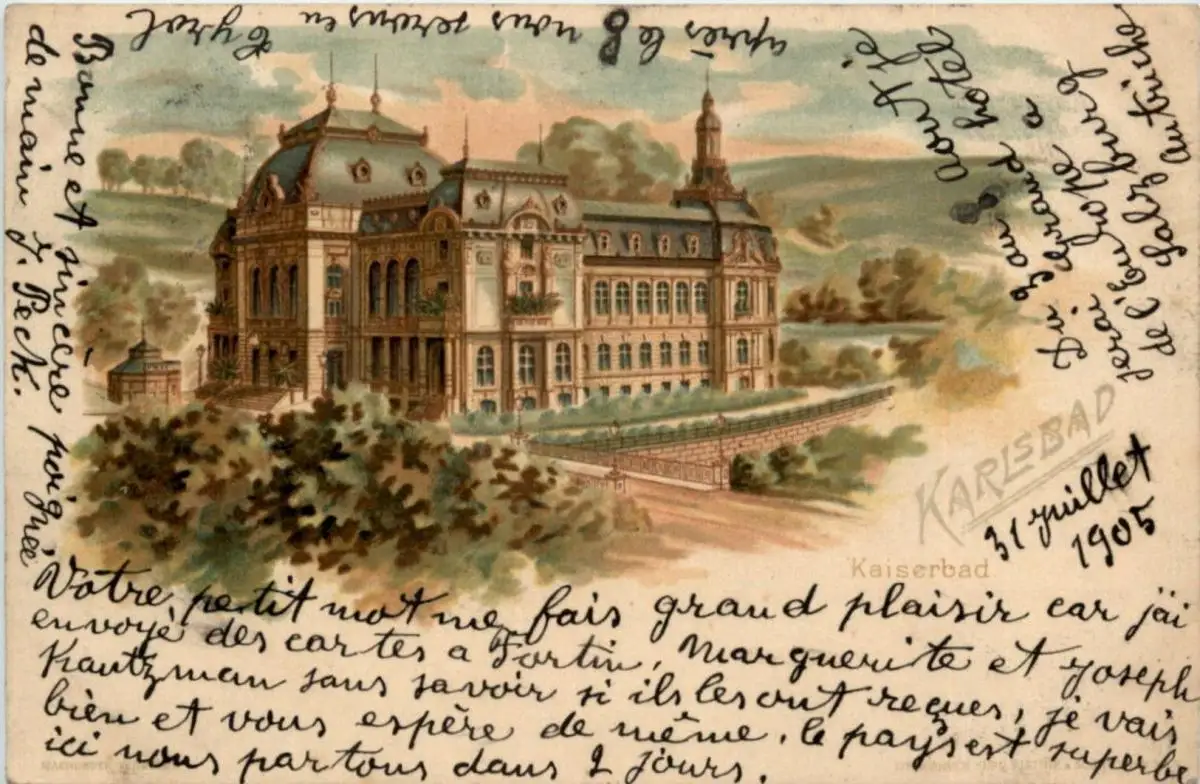 KARLSBAD
Kaiserbad
31 juillet
1905
Votre petit mot me fais grand plaisir car j'ai
envoyé des cartes a Fortin, Marguerite et Joseph
Kautzman sans savoir si ils les ont reçues, je vais
bien et vous espère de même, le pays est superbe
ici nous partons dans 2 jours.
Du 3 au 8 Aout je
serai Grand hotel
de l'Europe a
Salzburg
Autriche
après le 8 nous serons en Tyrol
Bonne et sincère poignée
de main J. Peck.